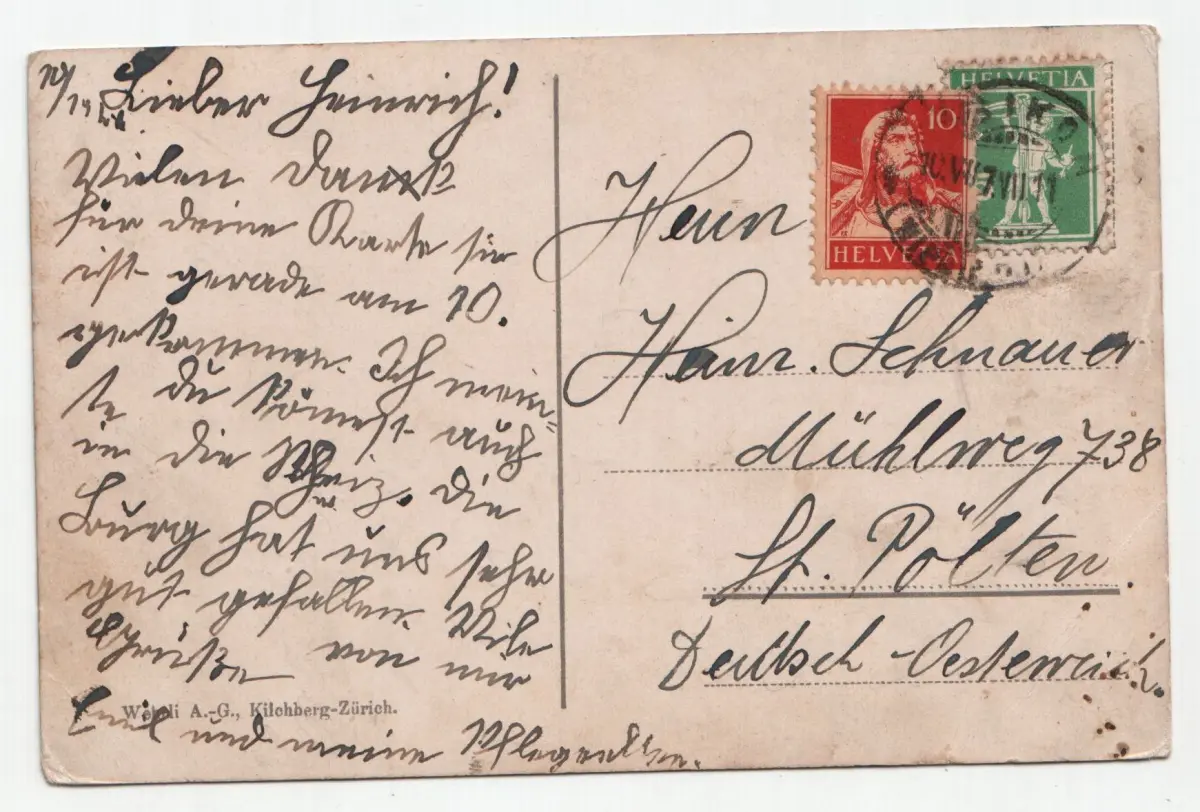 Lieber Heinrich!
Vielen Dank
für deine Karte sie
ist gerade am 10.
gekommen. Ich mein-
te du kömest auch
in die Schweiz. Die
Burg hat uns sehr
gut gefallen. Viele
Grüße von mir
und meine Pflegeeltern.
Wehrli A.-G., Kilchberg-Zürich.
HELVETIA
10
HELVETIA
Herrn
Heinr. Schnauer
Mühlweg 738
St. Pölten.
Deutsch-Oesterreich.